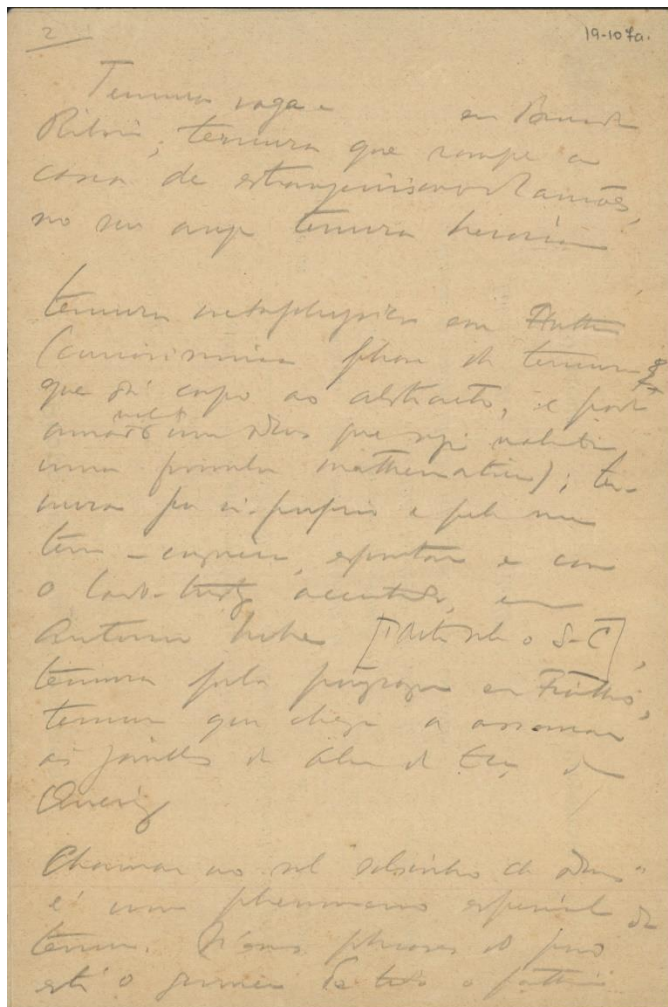 2
19-107a.
Ternura vaga e em Bernardim
Ribeiro; ternura que rompe a
casca de estrangeirismo em Camões,
no seu auge ternura heroica
ternura metaphysica em Anthero
(curiosissima phase da ternura
que dá corpo ao abstracto, e pode
amar um Deus que seja
uma formula mathematica); ter-
nura por si-proprio e pela sua
terra - espontanea e com
o lado accentuado, em
Antonio Nobre
ternura pela paysagem em Fialho,
ternura que chega a assomar
ás janellas da alma de Eça de
Queiroz
Chamar ao sol "solsinho de Deus"
é um phenomeno especial de
ternura. N'essa phrase do povo
está o germen de todo o